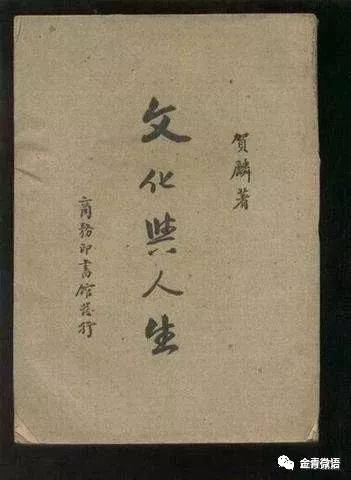 賀麟著
文化與人生
商務印書館發行
金青微语